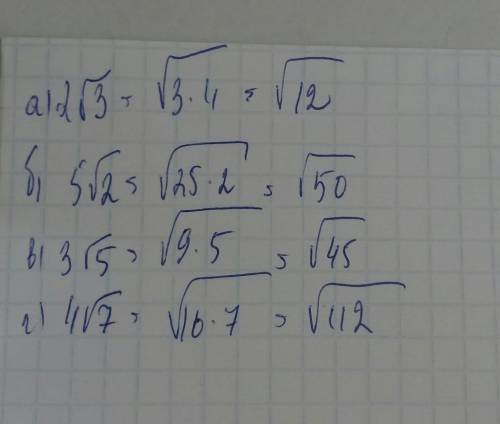 а) 2√3 = √3·4 = √12
б) 5√2 = √25·2 = √50
в) 3√5 = √9·5 = √45
г) 4√7 = √16·7 = √112